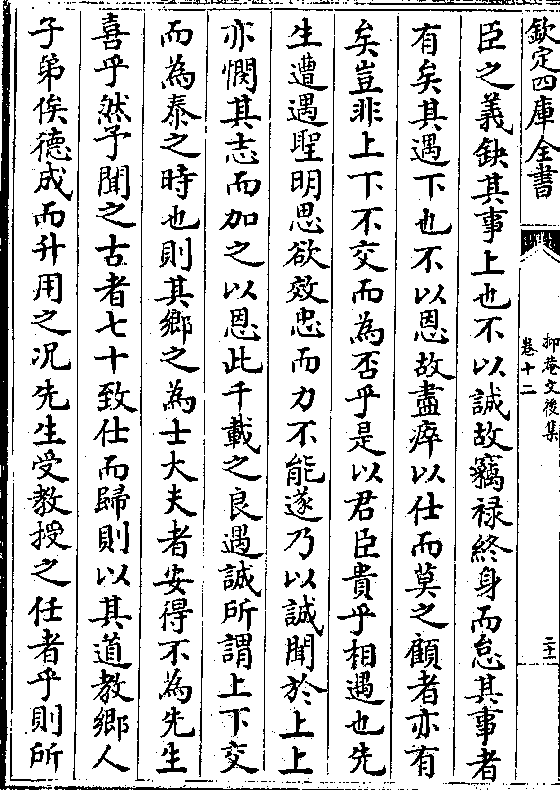 欽定四庫全書
抑菴文後集
卷十二
二十一
臣之義缺其事上也不以誠故竊禄終身而怠其事者
有矣其遇下也不以恩故盡瘁以仕而莫之顧者亦有
矣豈非上下不交而為否乎是以君臣貴乎相遇也先
生遭遇聖明思欲效忠而力不能遂乃以誠聞於上上
亦憫其志而加之以恩此千載之良遇誠所謂上下交
而為泰之時也則其鄉之為士大夫者安得不為先生
喜乎然予聞之古者七十致仕而歸則以其道教鄉人
子弟俟德成而升用之况先生受教授之任者乎則所